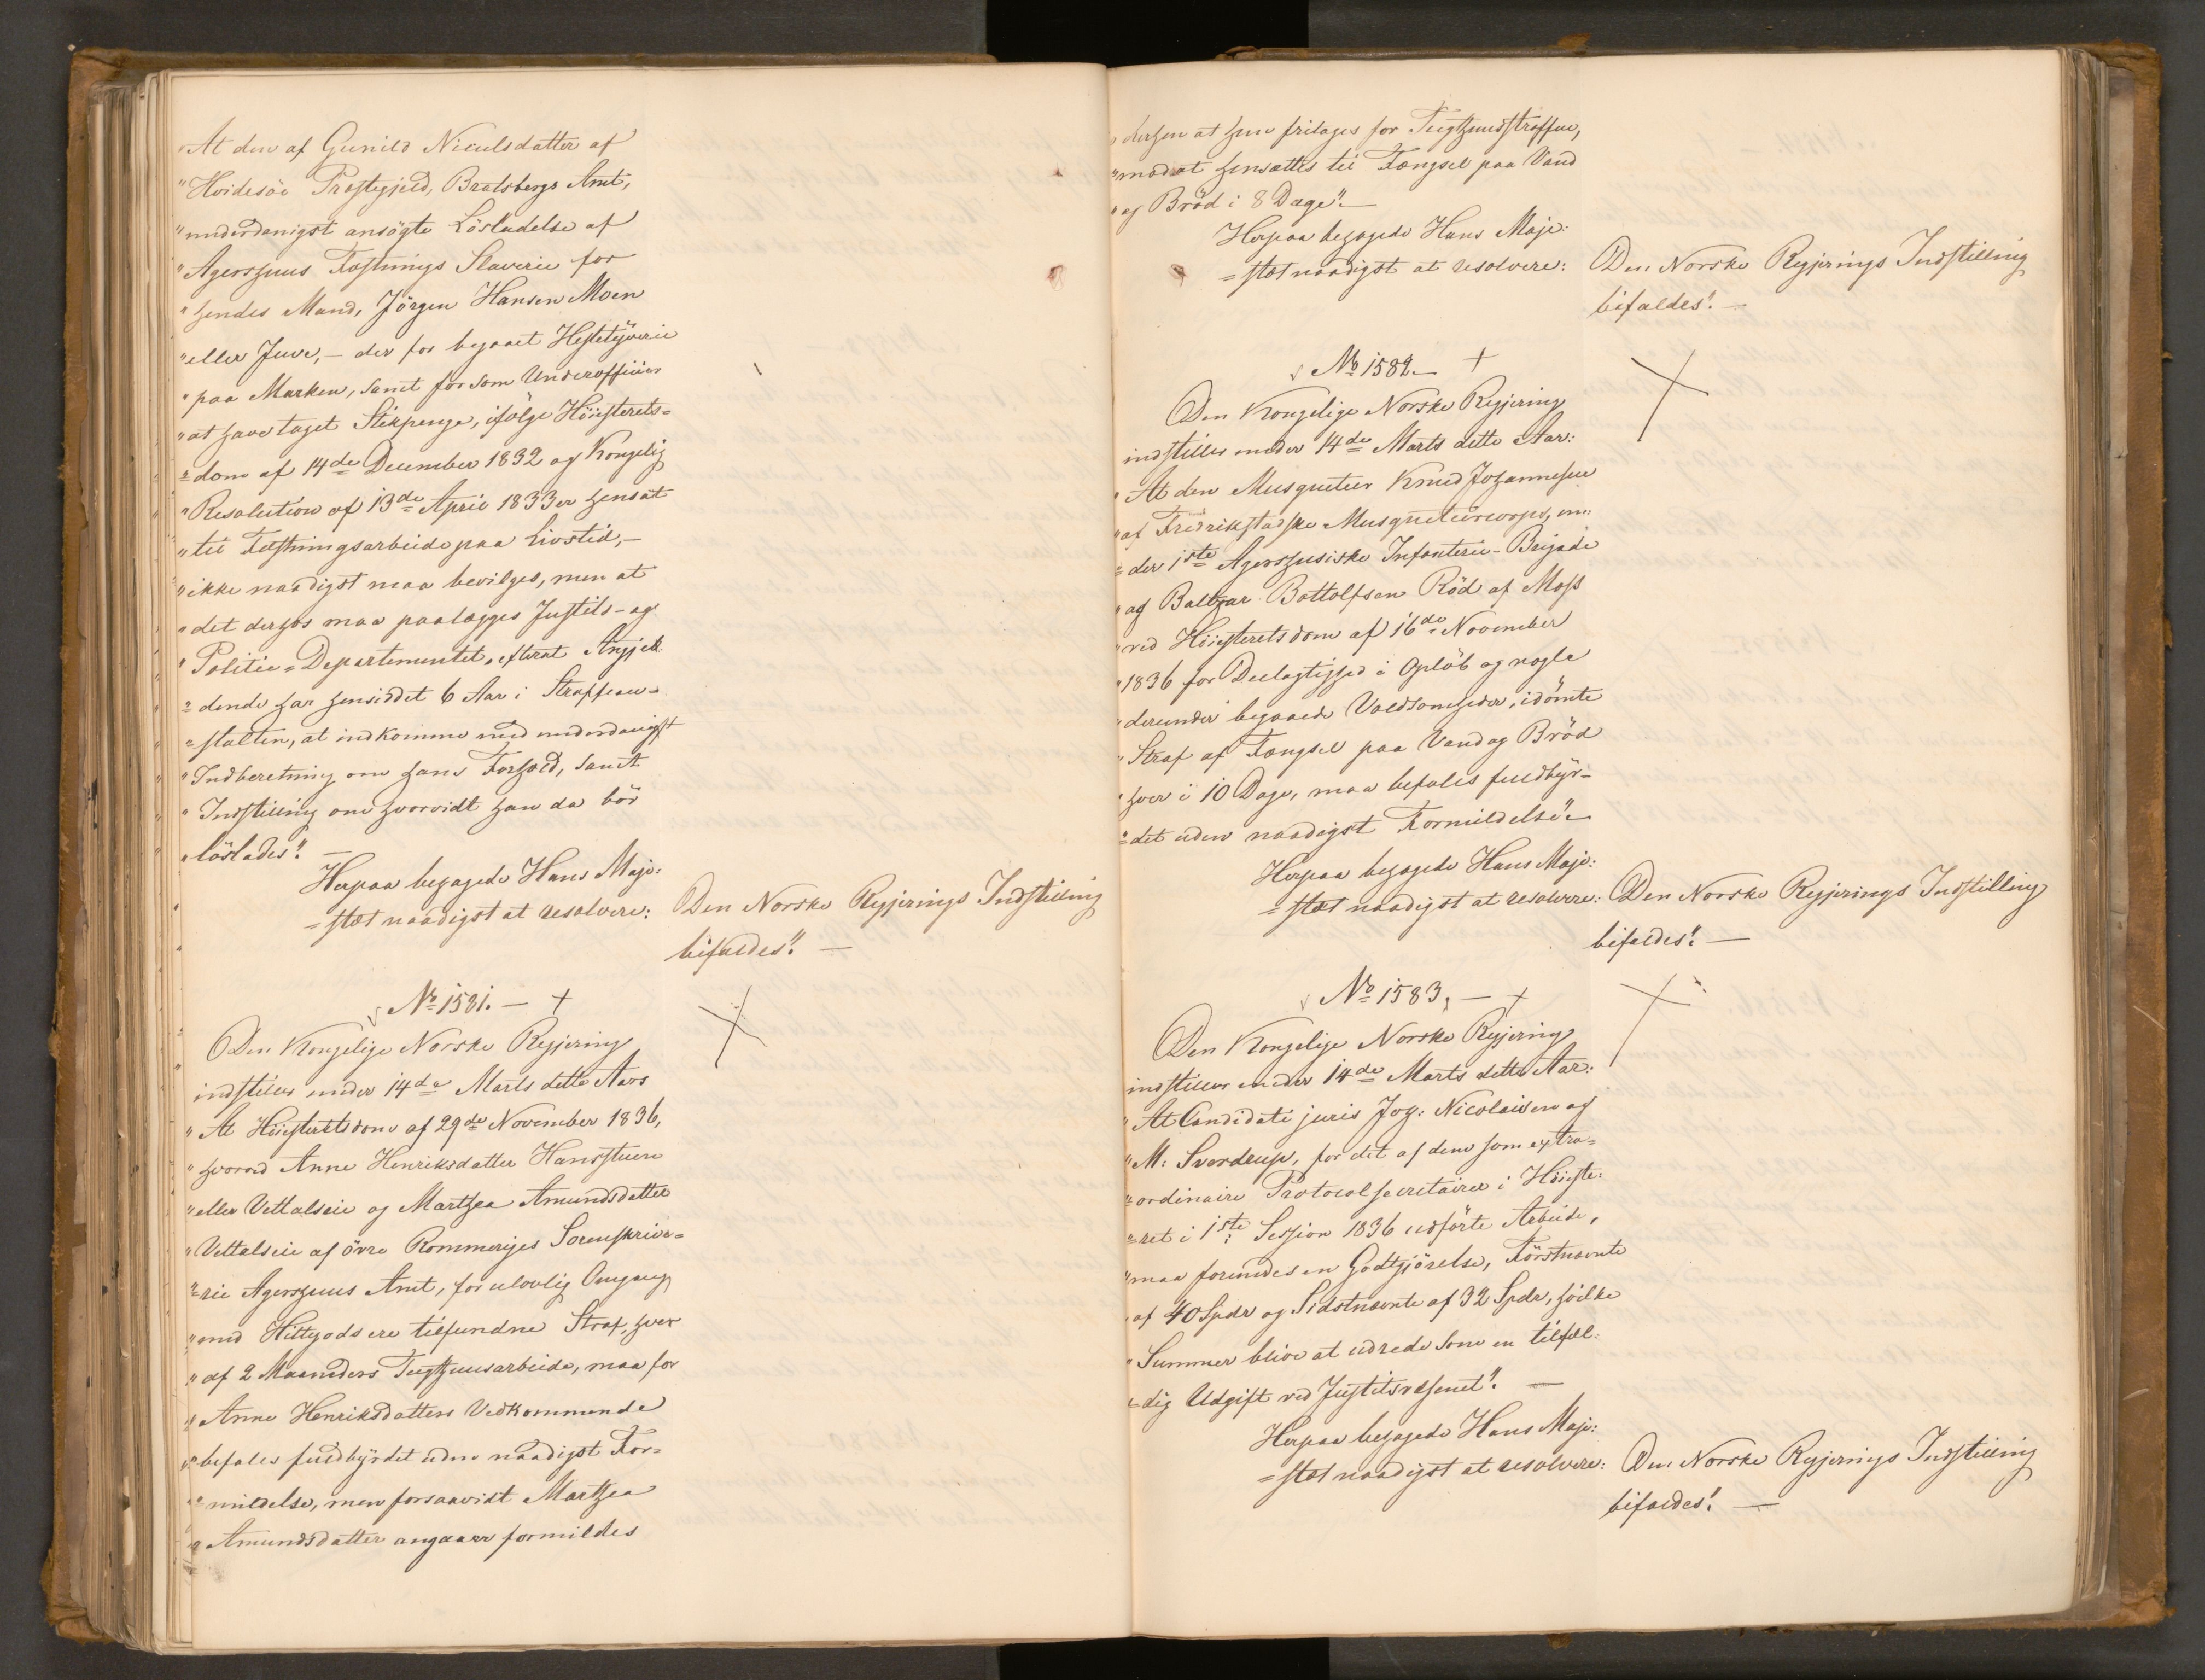 "At den af Gunild Niculsdatter af
"Hvidesöe Præstegjeld, Bratsbergs Amt,
"underdanigst ansögte Lösladelse af
"Agershuus Fæstnings Slaverie for
"hendes Mand, Jörgen Hansen Moen
"eller Juve, – der for begaaet Hestetyverie
"paa Marken, samt for som Underofficier
"at have taget Stikpenge, ifölge Höiesterets=
"=dom af 14de December 1832 og Kongelig
"Resolution af 13de April 1833 er hensat
"til Fæstningsarbeide paa Livstid, –
"ikke naadigst maa bevilges, men at
"det derhos maa paalægges Justits- og
"Politie-Departementet, efterat Angjel=
"=dende har hensiddet 6 Aar i Straffean=
"=stalten, at indkomme med underdanigst
"Indberetning om hans Forhold, samt
"Indstilling om hvorvidt han da bör
"löslades". –
Herpaa behagede Hans Maje:
=stæt naadigst at resolvere: Den Norske Regjerings Indstilling
bifaldes". –
No 1581. – +
Den Kongelige Norske Regjering
indstiller under 14de Marts dette Aar:
"At Höiesteretsdom af 29de November 1836,
"hvorved Anne Henriksdatter Hansstuen
"eller Vettalseie og Marthea Amundsdatter
"Vettalseie af övre Rommeriges Sorenskrive=
"=rie Agershuus Amt, for ulovlig Omgang
"med Hittegods ere tilfundne Straf, hver
"af 2 Maaneders Tugthuusarbeide, maa for
"Anne Henriksdatters Vedkommende
"befales fuldbyrdet uden naadigst For=
"=mildelse, men forsaavidt Marthea
"Amundsdatter angaaer formildes
"derhen at hun fritages for Tugthuusstraffen,
"mod at hensættes til Fængsel paa Vand
"og Bröd i 8 Dage". –
Herpaa behagede Hans Maje:
=stæt naadigst at resolvere: Den Norske Regjerings Indstilling
bifaldes". –
No 1582. – +
Den Kongelige Norske Regjering
indstiller under 14de Marts dette Aar:
"At den Musqueteer Knud Johannesen
"af Fredrikstadske Musqueteercorps, un:
"=der 1ste Agershusiske Infanterie-Brigade
"og Balthzar Bottolfsen Röd af Moss
"ved Höiesteretsdom af 16de November
"1836 for Deelagtighed i Oplöb og nogle
"derunder begaaede Voldsomheder, idömte
"Straf af Fængsel paa Vand og Bröd
"hver i 10 Dage, maa befales fuldbyr=
"=det uden naadigst Formildelse". –
Herpaa behagede Hans Maje:
=stæt naadigst at resolvere: Den Norske Regjerings Indstilling
bifaldes". –
No 1583. – +
Den Kongelige Norske Regjering
indstiller under 14de Marts dette Aar:
"At Candidati juris Joh: Nicolaisen og
"M: Sverdrup, for det af dem som extra=
"=ordinaire Protocolsecretairer i Höieste:
"=ret i 1ste Session 1836 udförte Arbeide,
"maa forundes en Godtgjörelse, Förstnævnte
"af 40 Spdr og Sidstnævnte af 32 Spdr, hvilke
"Summer blive at udrede som en tilfæl:
"=dig Udgift ved Justitsvæsenet". –
Herpaa behagede Hans Maje:
=stæt naadigst at resolvere: Den Norske Regjerings Indstilling
bifaldes". –